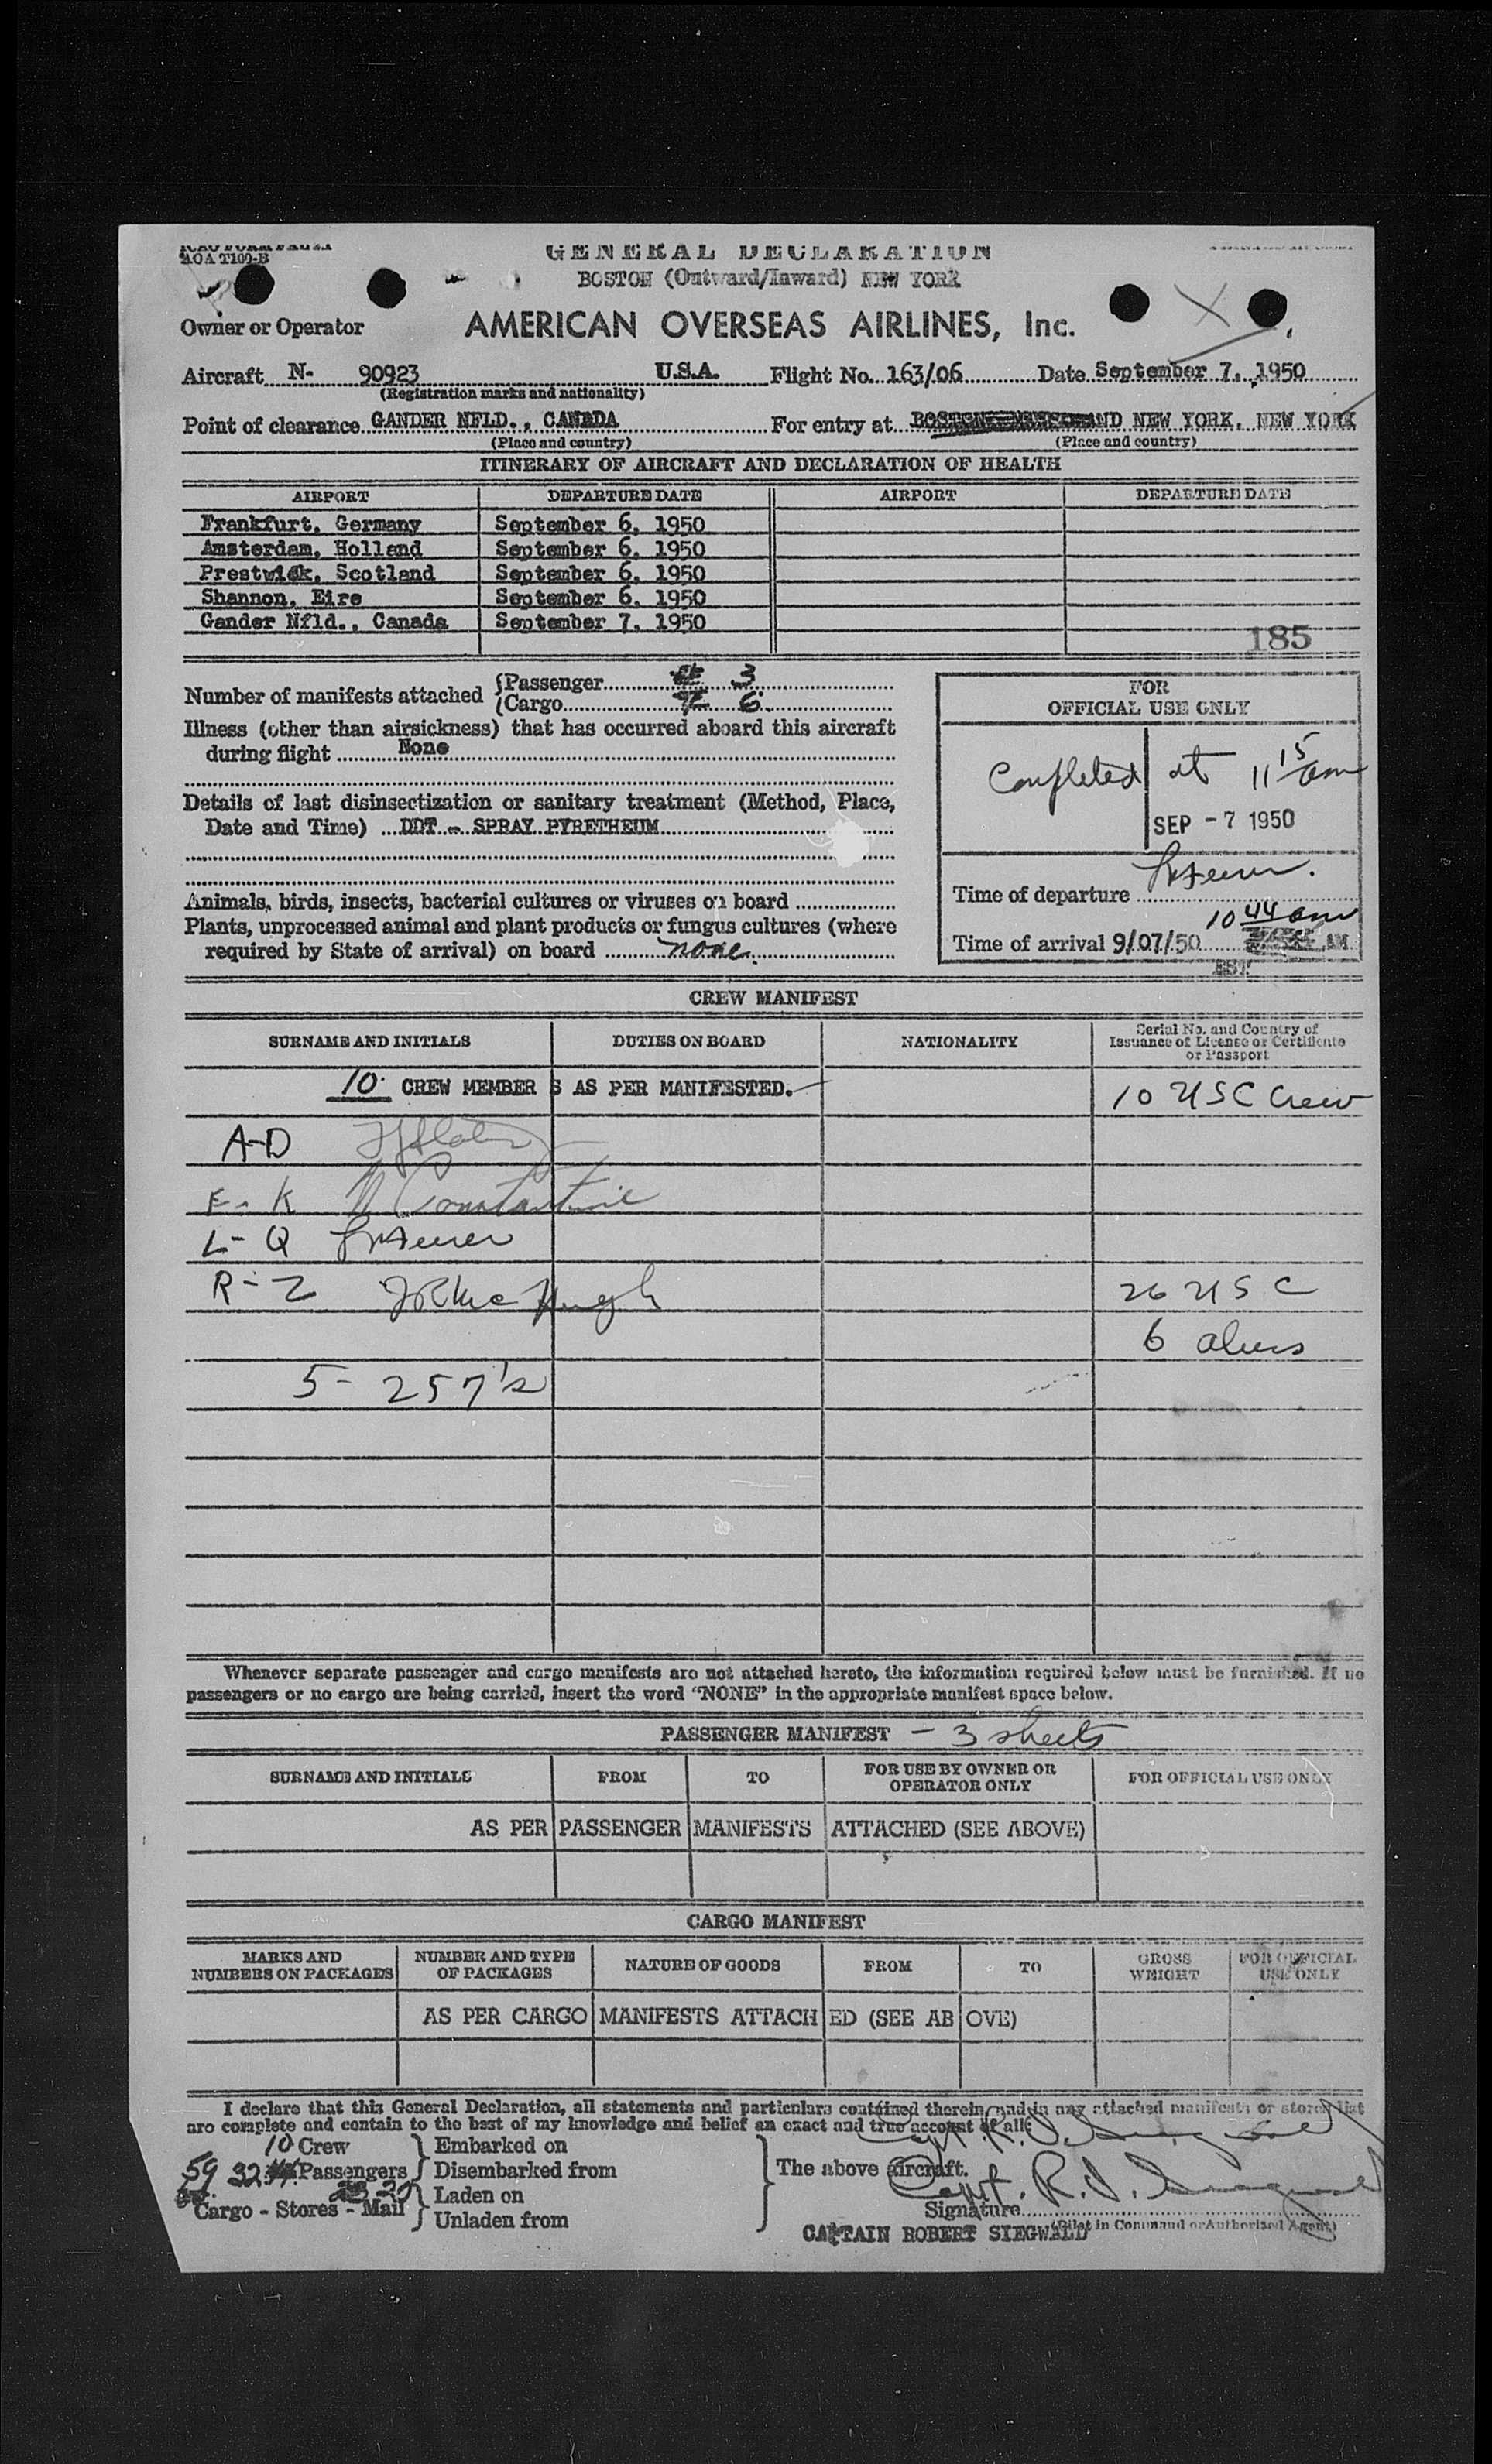 AOA T100-B
GENERAL DECLARATION
BOSTON (Outward/Inward) NEW YORK
Owner or Operator AMERICAN OVERSEAS AIRLINES, Inc.
Aircraft N- 90923 U.S.A. Flight No. 163/06 Date September 7, 1950
(Registration marks and nationality)
Point of clearance GANDER NFLD., CANADA For entry at BOSTON AND NEW YORK, NEW YORK
(Place and country) (Place and country)
ITINERARY OF AIRCRAFT AND DECLARATION OF HEALTH
AIRPORT DEPARTURE DATE AIRPORT DEPARTURE DATE
Frankfurt, Germany September 6, 1950
Amsterdam, Holland September 6, 1950
Prestwick, Scotland September 6, 1950
Shannon, Eire September 6, 1950
Gander Nfld., Canada September 7, 1950
185
Number of manifests attached Passenger 3
Cargo 6
Illness (other than airsickness) that has occurred aboard this aircraft
during flight None
Details of last disinsectization or sanitary treatment (Method, Place,
Date and Time) DDT - SPRAY PYRETHEUM
Animals, birds, insects, bacterial cultures or viruses on board
Plants, unprocessed animal and plant products or fungus cultures (where
required by State of arrival) on board none.
FOR
OFFICIAL USE ONLY
Completed at 11 15 am
SEP - 7 1950
Time of departure
10 44 am
Time of arrival 9/07/50 AM
EST
CREW MANIFEST
SURNAME AND INITIALS DUTIES ON BOARD NATIONALITY Serial No. and Country of
Issuance of License or Certificate
or Passport
10 CREW MEMBER S AS PER MANIFESTED. 10 USC Crew
A-D
E-K Constantine
L-Q
R-Z 26 USC
6 aliens
5- 257's
Whenever separate passenger and cargo manifests are not attached hereto, the information required below must be furnished. If no
passengers or no cargo are being carried, insert the word "NONE" in the appropriate manifest space below.
PASSENGER MANIFEST - 3 sheets
SURNAME AND INITIALS FROM TO FOR USE BY OWNER OR
OPERATOR ONLY FOR OFFICIAL USE ONLY
AS PER PASSENGER MANIFESTS ATTACHED (SEE ABOVE)
CARGO MANIFEST
MARKS AND
NUMBERS ON PACKAGES NUMBER AND TYPE
OF PACKAGES NATURE OF GOODS FROM TO GROSS
WEIGHT FOR OFFICIAL
USE ONLY
AS PER CARGO MANIFESTS ATTACH ED (SEE AB OVE)
I declare that this General Declaration, all statements and particulars contained therein, and in any attached manifests or stores list
are complete and contain to the best of my knowledge and belief an exact and true account of all:
10 Crew Embarked on
59 32 Passengers Disembarked from The above aircraft.
Cargo - Stores - Mail Laden on
Unladen from
Capt. R. J. Siegwald
Signature
(Pilot in Command or Authorized Agent)
CAPTAIN ROBERT SIEGWALD